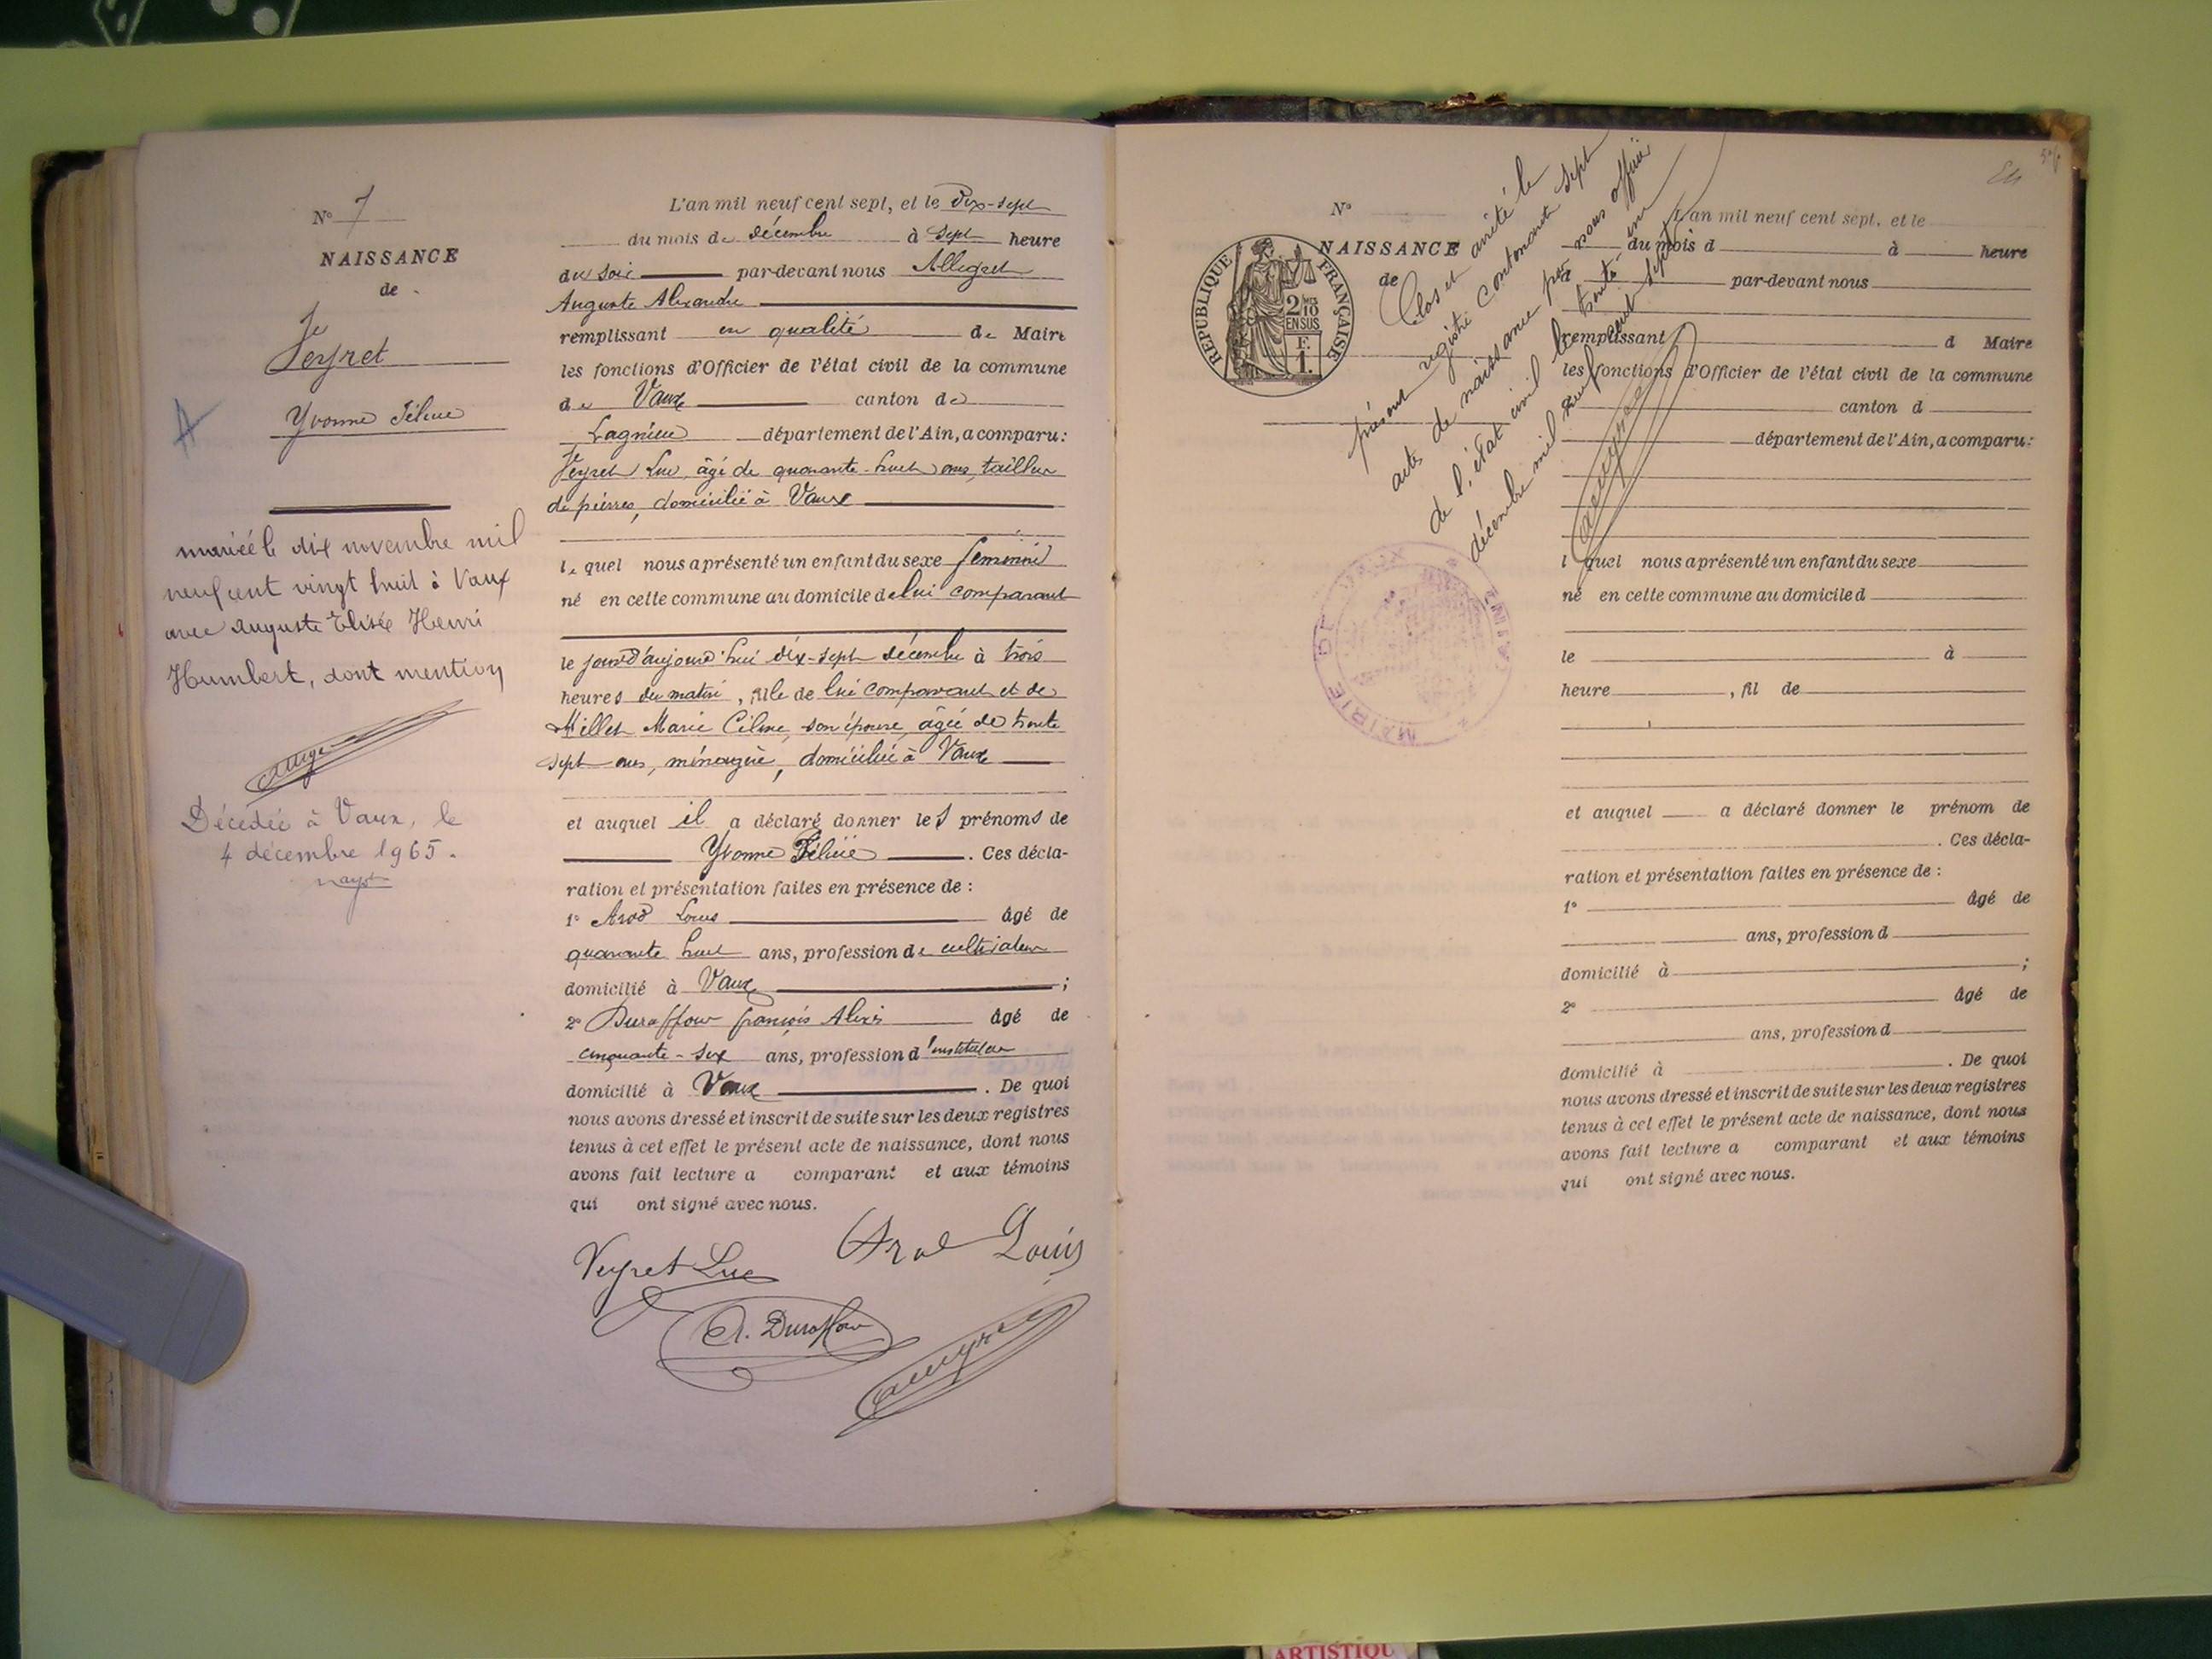 N° 7
NAISSANCE
de
Veyret
Yvonne Félicie
A
mariée le dix novembre mil
neuf cent vingt huit à Vaux
avec Auguste Elisée Henri
Humbert, dont mention
Décédée à Vaux, le
4 décembre 1965.
L'an mil neuf cent sept, et le dix-sept
du mois de décembre à sept heure
du soir par-devant nous
Auguste Alexandre
remplissant en qualité de Maire
les fonctions d'Officier de l'état civil de la commune
de Vaux canton de
Lagnieu département de l'Ain, a comparu:
Veyret Luc, âgé de quarante-huit ans, tailleur
de pierres, domicilié à Vaux
le quel nous a présenté un enfant du sexe féminin
né en cette commune au domicile de lui comparant
le jour d'aujourd'hui dix-sept décembre à trois
heures du matin, fille de lui comparant et de
Millet Marie Céline, son épouse, âgée de trente
sept ans, ménagère, domiciliée à Vaux
et auquel il a déclaré donner les prénoms de
Yvonne Félicie. Ces décla-
ration et présentation faites en présence de :
1° Arod Louis âgé de
quarante huit ans, profession de cultivateur
domicilié à Vaux ;
2° Duraffour françois Alexis âgé de
cinquante-six ans, profession d'instituteur
domicilié à Vaux. De quoi
nous avons dressé et inscrit de suite sur les deux registres
tenus à cet effet le présent acte de naissance, dont nous
avons fait lecture a comparant et aux témoins
qui ont signé avec nous.
Veyret Luc Arod Louis
A. Duraffour
N°
NAISSANCE
de
RÉPUBLIQUE FRANÇAISE
2/10
EN SUS
F.
1.
Clos et arrêté le
présent registre contenant sept
actes de naissance par nous officier
de l'état civil le trente-un
décembre mil neuf cent sept
MAIRIE DE VAUX (AIN)
L'an mil neuf cent sept, et le
du mois d à heure
par-devant nous
remplissant d Maire
les fonctions d'Officier de l'état civil de la commune
canton d
département de l'Ain, a comparu:
l quel nous a présenté un enfant du sexe
né en cette commune au domicile d
le à
heure , fil de
et auquel a déclaré donner le prénom de
. Ces décla-
ration et présentation faites en présence de :
1° âgé de
ans, profession d
domicilié à ;
2° âgé de
ans, profession d
domicilié à . De quoi
nous avons dressé et inscrit de suite sur les deux registres
tenus à cet effet le présent acte de naissance, dont nous
avons fait lecture a comparant et aux témoins
qui ont signé avec nous.
ARTISTIQU